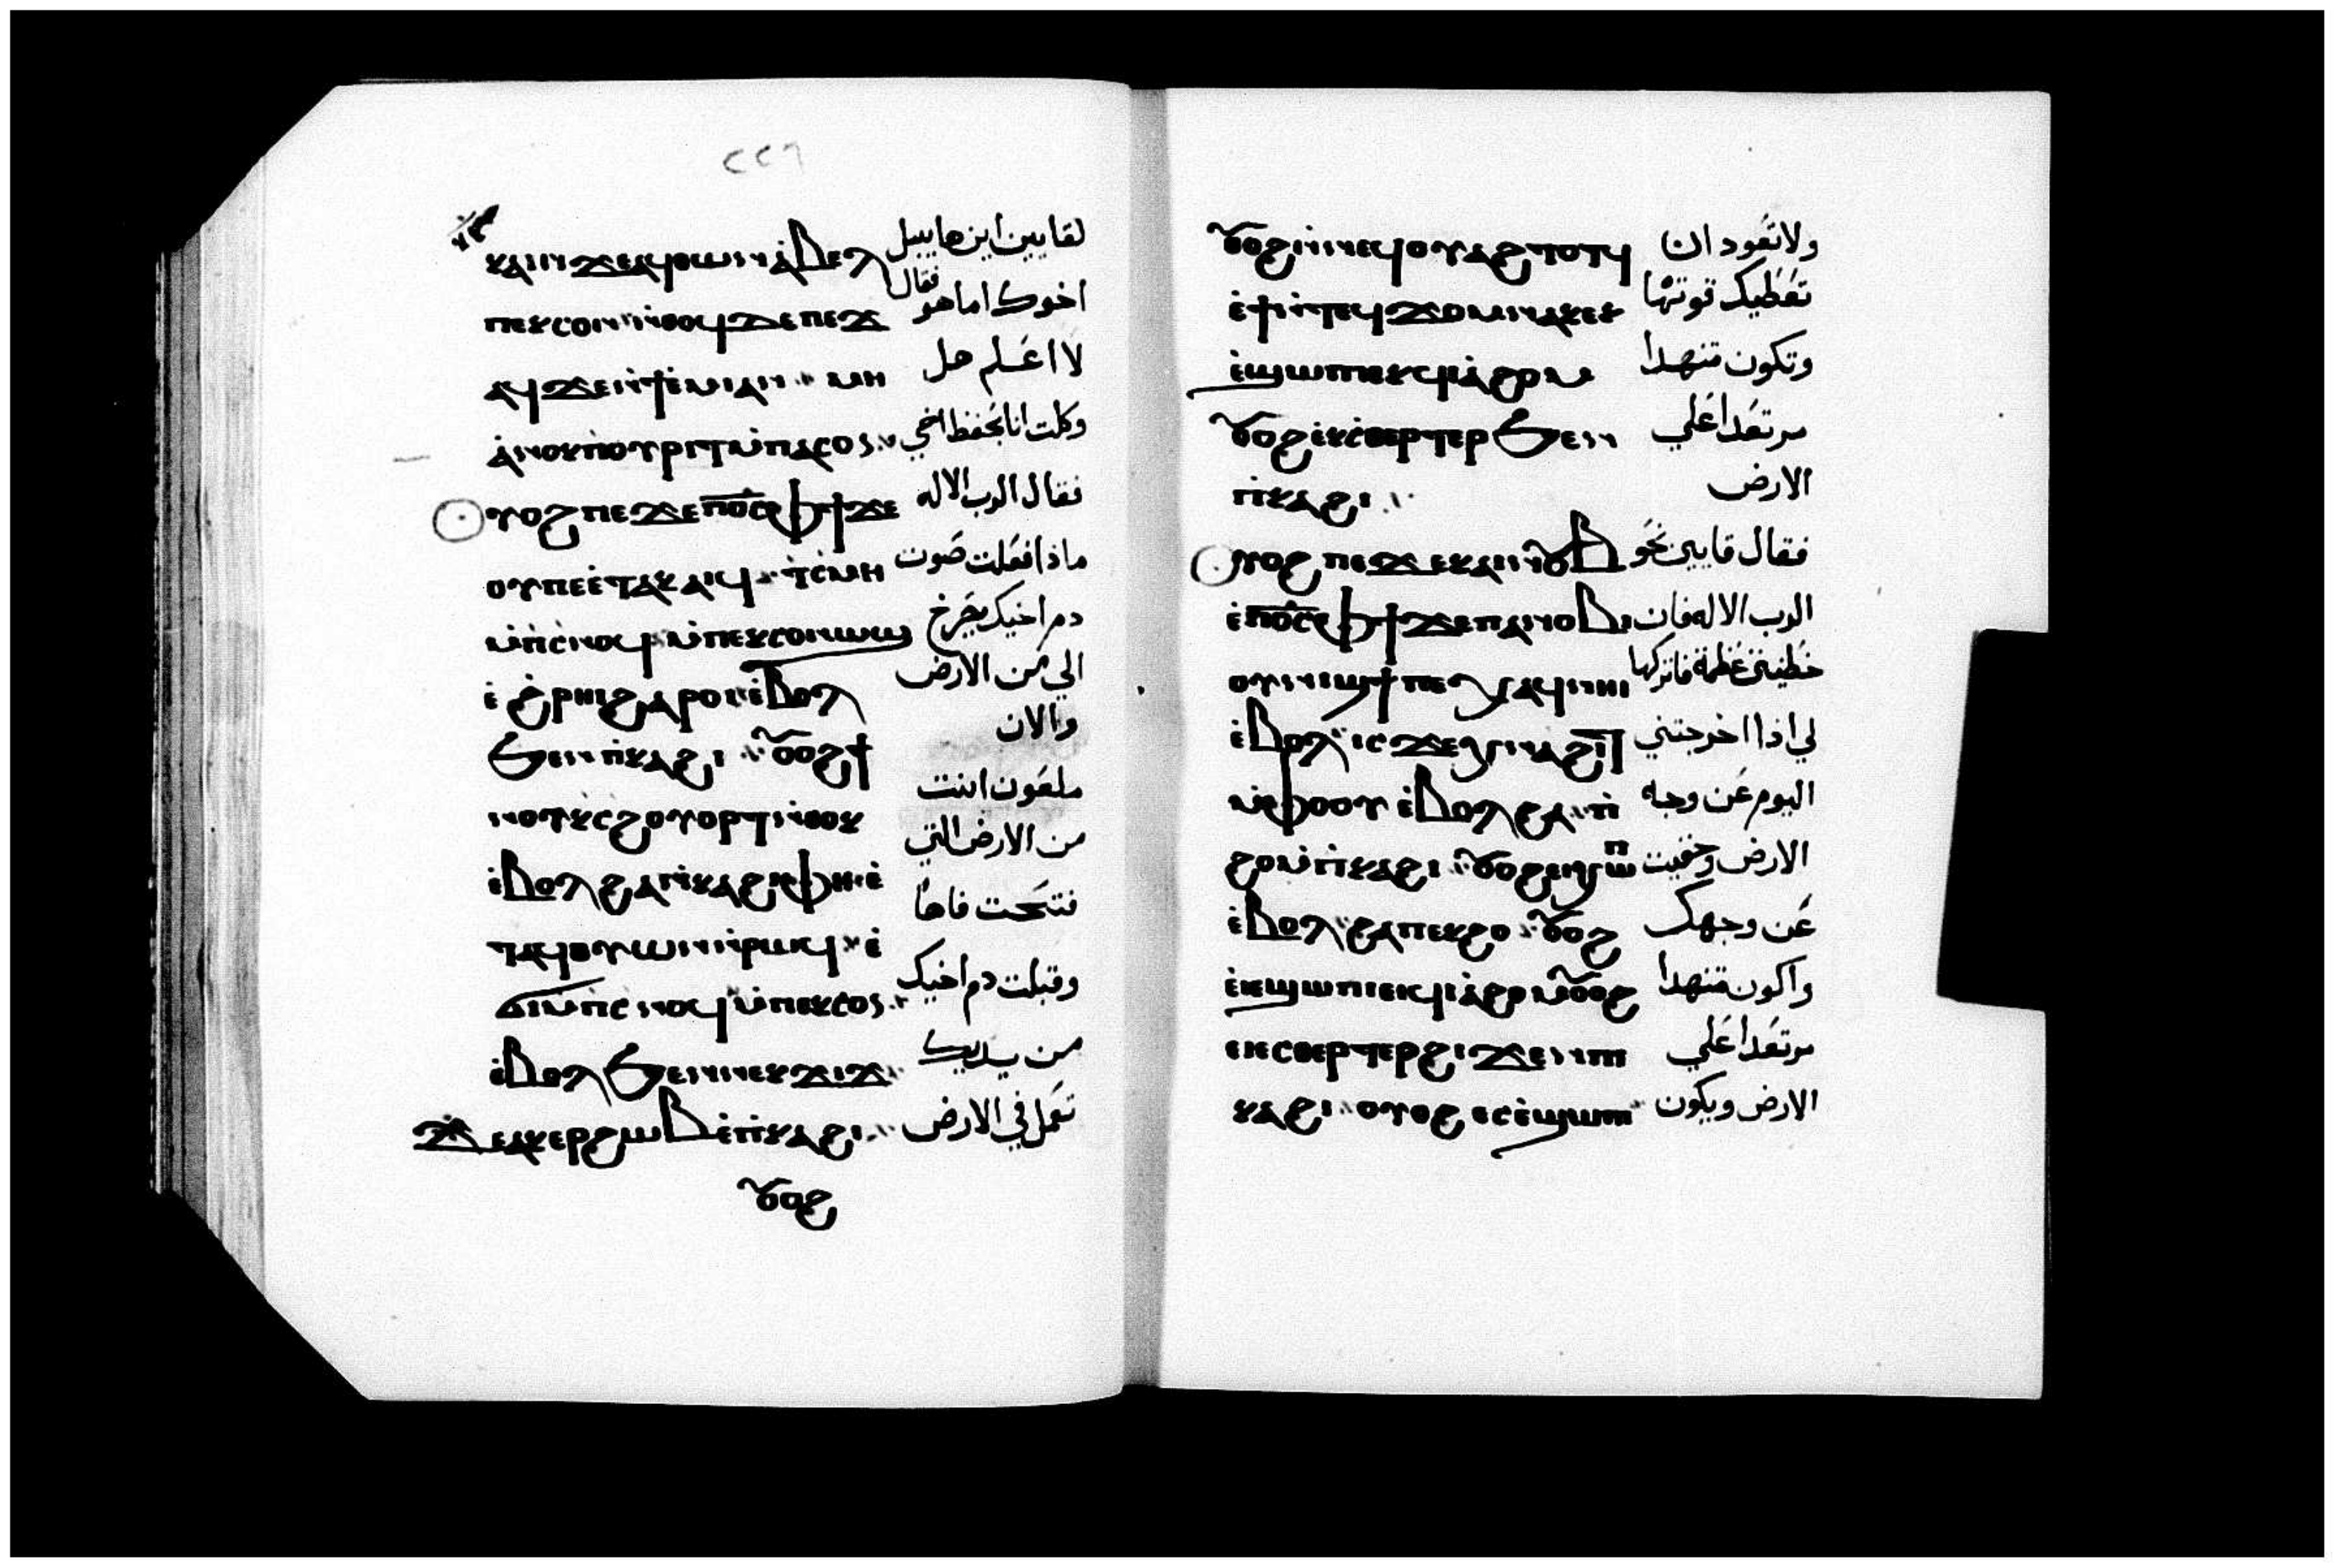 ٢٢٦
ⲕⲁⲓⲛ ϫⲉ ⲁϥⲑⲱⲛ ⲁ̇ⲃⲉⲗ لقايين اين هابيل
ⲡⲉⲕⲥⲟⲛ ⲛ̇ⲑⲟϥ ⲇⲉ ⲡⲉϫ اخوك اما هو فقال
ⲁϥ ϫⲉ ⲛ̇ϯⲉ̇ⲙⲓ ⲁⲛ ⲙⲏ لا اعلم هل
ⲁ̇ⲛⲟⲕ ⲡⲟⲩⲣⲓⲧ ⲙ̇ⲡⲁⲥⲟⲛ وكلت انا بحفظ اخي
ⲟⲩⲟϩ ⲡⲉϫⲉ ⲡ̅ⲟ̅ⲥ̅ ⲫϯ ϫⲉ فقال الرب الاله
ⲟⲩ ⲡⲉ ⲉ̇ⲧⲁⲕⲁⲓϥ ϯⲥ̇ⲙⲏ ماذا فعلت صوت
ⲙ̇ⲡⲥ̇ⲛⲟϥ ⲙ̇ⲡⲉⲕⲥⲟⲛ ⲱϣ دم اخيك يصرخ
ⲉ̇ϩⲣⲏⲓ ϩⲁⲣⲟⲓ ⲉ̇ⲃⲟⲗ الي من الارض
ϧⲉⲛ ⲡ̇ⲕⲁϩⲓ ⲟⲩⲟϩ ϯ والان
ⲛⲟⲩ ⲕ̇ⲥϩⲟⲩⲟⲣⲧ ⲛ̇ⲑⲟⲕ ملعون انت
ⲉ̇ⲃⲟⲗ ϩⲁ ⲡ̇ⲕⲁϩⲓ ⲫⲏ ⲉ̇ من الارض التي
ⲧⲁϥⲟⲩⲱⲛ ⲛ̇ⲣⲱϥ ⲉ̇ فتحت فاها
ϭⲓ ⲙ̇ⲡⲥⲛⲟϥ ⲙ̇ⲡⲉⲕⲥⲟⲛ وقبلت دم اخيك
ⲉ̇ⲃⲟⲗ ϧⲉⲛ ⲛⲉⲕϫⲓϫ من يديك
ϫⲉ ⲁⲕⲉⲣϩⲱⲃ ⲉ̇ⲡ̇ⲕⲁϩⲓ تعمل في الارض
ⲟⲩⲟϩ
ⲟⲩⲟϩ ⲛ̇ⲛⲉϥⲟⲩⲁϩⲧⲟⲧϥ ولا تعود ان
ⲉ̇ϯ ⲛ̇ⲧⲉϥϫⲟⲙ ⲛⲁⲕ ⲉⲕ تعطيك قوتها
ⲉ̇ϣⲱⲡⲓ ⲉⲕϥⲓⲁ̇ϩⲟⲙ وتكون متنهدا
ⲟⲩⲟϩ ⲉ̇ⲕⲥ̇ⲑⲉⲣⲧⲉⲣ ϧⲉⲛ مرتعدا علي
ⲡⲓⲕⲁϩⲓ الارض
ⲟⲩⲟϩ ⲡⲉϫⲉ ⲕⲁⲓⲛ ⲟⲩⲃ فقال قايين نحو
ⲉ̇ⲡ̅ⲟ̅ⲥ̅ ⲫϯ ϫⲉ ⲡⲁⲛⲟⲃⲓ الرب الاله فان
ⲟⲩⲛⲓϣϯ ⲡⲉ ⲭⲁϥ ⲛⲏⲓ خطيتي عظمة فاتركها
ⲉ̇ⲃⲟⲗ ⲓⲥϫⲉ ⲭⲛⲁϩⲓⲧ لي اذا اخرجتني
ⲙ̇ⲫⲟⲟⲩ ⲉ̇ⲃⲟⲗ ϩⲁ ⲡ̇ اليوم عن وجه
ϩⲟ ⲙ̇ⲡⲓⲕⲁϩⲓ ⲟⲩⲟϩ ⲉⲓⲭⲱⲡ الارض وخفيت
ⲉ̇ⲃⲟⲗ ϩⲁ ⲡⲉⲕϩⲟ ⲟⲩⲟϩ عن وجهك
ⲉⲓⲉ̇ϣⲱⲡⲓ ⲉⲓϥⲓⲁ̇ϩⲟⲙ ⲟⲩⲟϩ واكون متنهدا
ⲉⲓⲉⲥⲑⲉⲣⲧⲉⲣ ϩⲓϫⲉⲛ ⲡⲓ مرتعدا علي
ⲕⲁϩⲓ ⲟⲩⲟϩ ⲉⲥⲉ̇ϣⲱⲡⲓ الارض ويكون